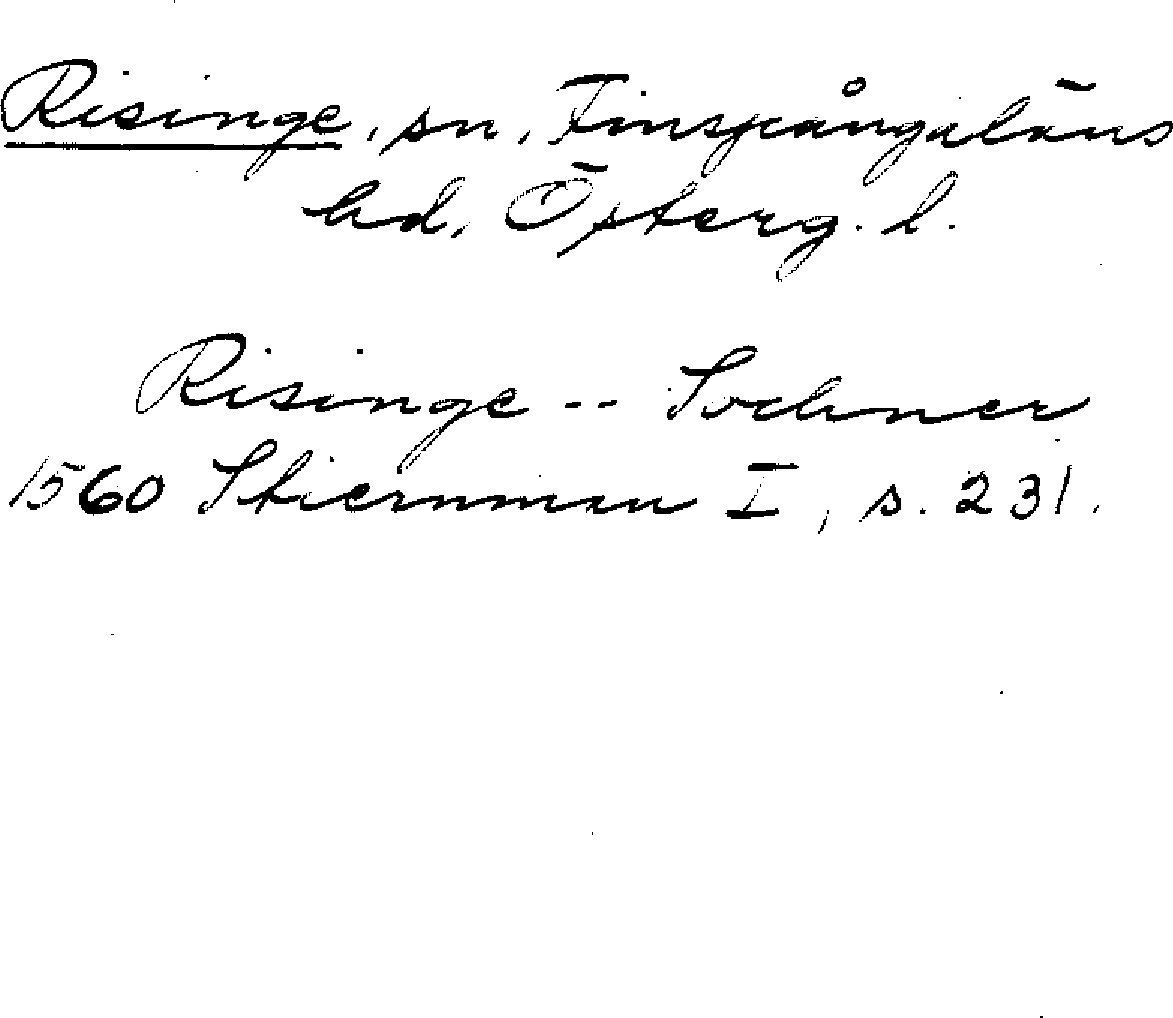 Risinge, sn, Finspångaläns
hd, Österg. l.
Risinge -- Sochner
1560 Stiernman I, s. 231.